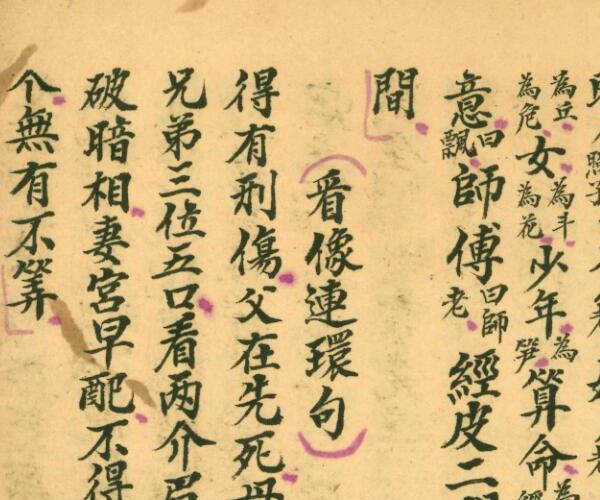 為丘為危女為斗為花少年為笋算命
意曰飄師傅曰師老經皮二
間
看像連環句
得有刑傷父在先死母
兄弟三位五口看両介
破暗相妻宮早配不得
个無有不算